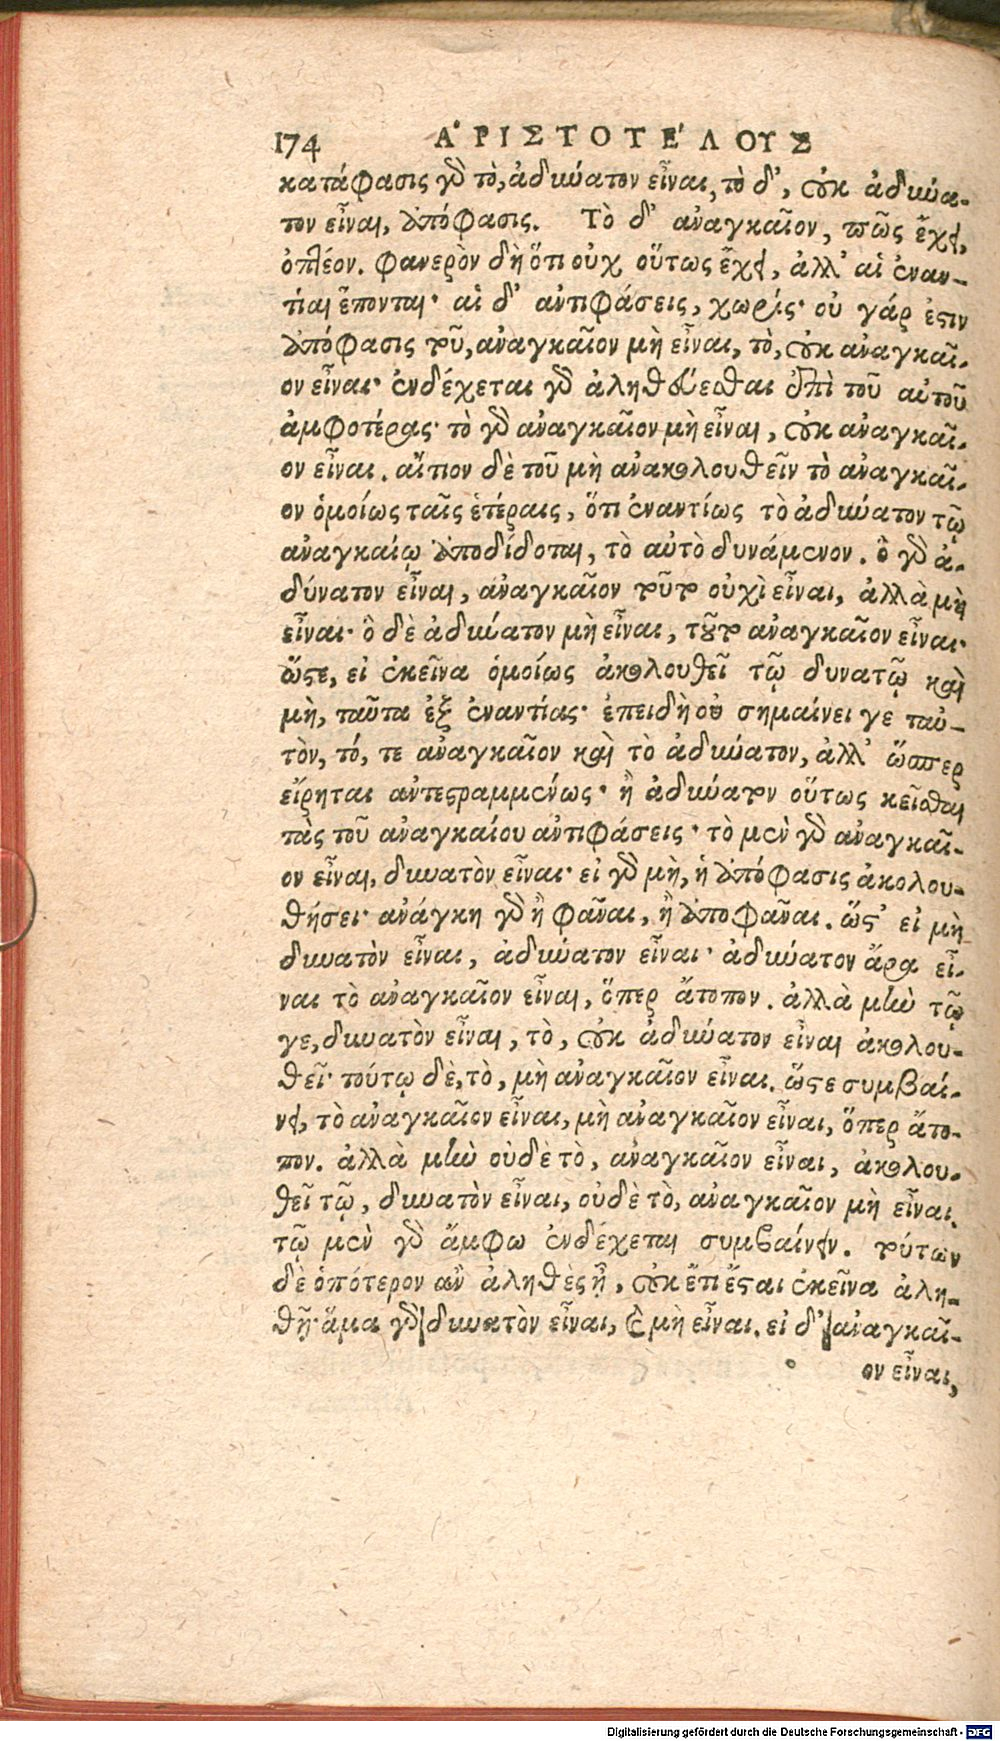 174 ἈΡΙΣΤΟΤΈΛΟΥΣ
κατάφασις γὰρ τὸ, ἀδύνατον εἶναι, τὸ δ’, οὐκ ἀδύνα-
τον εἶναι, ἀπόφασις. Τὸ δ’ ἀναγκαῖον, πῶς ἔχει,
ὀπτέον. Φανερὸν δὴ ὅτι οὐχ οὕτως ἔχει, ἀλλ’ αἱ ἐναν-
τίαι ἕπονται· αἱ δ’ ἀντιφάσεις, χωρίς· οὐ γάρ ἐστιν
ἀπόφασις τοῦ, ἀναγκαῖον μὴ εἶναι, τὸ, οὐκ ἀναγκαῖ-
ον εἶναι· ἐνδέχεται γὰρ ἀληθεύεσθαι ἐπὶ τοῦ αὐτοῦ
ἀμφοτέρας· τὸ γὰρ ἀναγκαῖον μὴ εἶναι, οὐκ ἀναγκαῖ-
ον εἶναι. αἴτιον δὲ τοῦ μὴ ἀνακολουθεῖν τὸ ἀναγκαῖ-
ον ὁμοίως ταῖς ἑτέραις, ὅτι ἐναντίως τὸ ἀδύνατον τῷ
ἀναγκαίῳ ἀποδίδοται, τὸ αὐτὸ δυνάμενον. ὃ γὰρ ἀ-
δύνατον εἶναι, ἀναγκαῖον τοῦτο οὐχὶ εἶναι, ἀλλὰ μὴ
εἶναι· ὃ δὲ ἀδύνατον μὴ εἶναι, τοῦτο ἀναγκαῖον εἶναι·
ὥστε, εἰ ἐκεῖνα ὁμοίως ἀκολουθεῖ τῷ δυνατῷ καὶ
μὴ, ταῦτα ἐξ ἐναντίας· ἐπειδὴ οὐ σημαίνει γε ταὐ-
τὸν, τό, τε ἀναγκαῖον καὶ τὸ ἀδύνατον, ἀλλ’ ὥσπερ
εἴρηται ἀντεστραμμένως· ἢ ἀδύνατον οὕτως κεῖσθαι
τὰς τοῦ ἀναγκαίου ἀντιφάσεις· τὸ μὲν γὰρ ἀναγκαῖ-
ον εἶναι, δυνατὸν εἶναι· εἰ γὰρ μὴ, ἡ ἀπόφασις ἀκολου-
θήσει· ἀνάγκη γὰρ ἢ φᾶναι, ἢ ἀποφᾶναι. ὥστ’ εἰ μὴ
δυνατὸν εἶναι, ἀδύνατον εἶναι· ἀδύνατον ἄρα εἶ-
ναι τὸ ἀναγκαῖον εἶναι, ὅπερ ἄτοπον. ἀλλὰ μὴν τῷ
γε, δυνατὸν εἶναι, τὸ, οὐκ ἀδύνατον εἶναι ἀκολου-
θεῖ· τούτῳ δὲ, τὸ, μὴ ἀναγκαῖον εἶναι. ὥστε συμβαί-
νει, τὸ ἀναγκαῖον εἶναι, μὴ ἀναγκαῖον εἶναι, ὅπερ ἄτο-
πον. ἀλλὰ μὴν οὐδὲ τὸ, ἀναγκαῖον εἶναι, ἀκολου-
θεῖ τῷ, δυνατὸν εἶναι, οὐδὲ τὸ, ἀναγκαῖον μὴ εἶναι.
τῷ μὲν γὰρ ἄμφω ἐνδέχεται συμβαίνειν. τούτων
δὲ ὁπότερον ἂν ἀληθὲς ᾖ, οὐκ ἔτι ἔσται ἐκεῖνα ἀλη-
θῆ· ἅμα γὰρ δυνατὸν εἶναι, καὶ μὴ εἶναι. εἰ δ’ ἀναγκαῖ-
ον εἶναι,
Digitalisierung gefördert durch die Deutsche Forschungsgemeinschaft - DFG